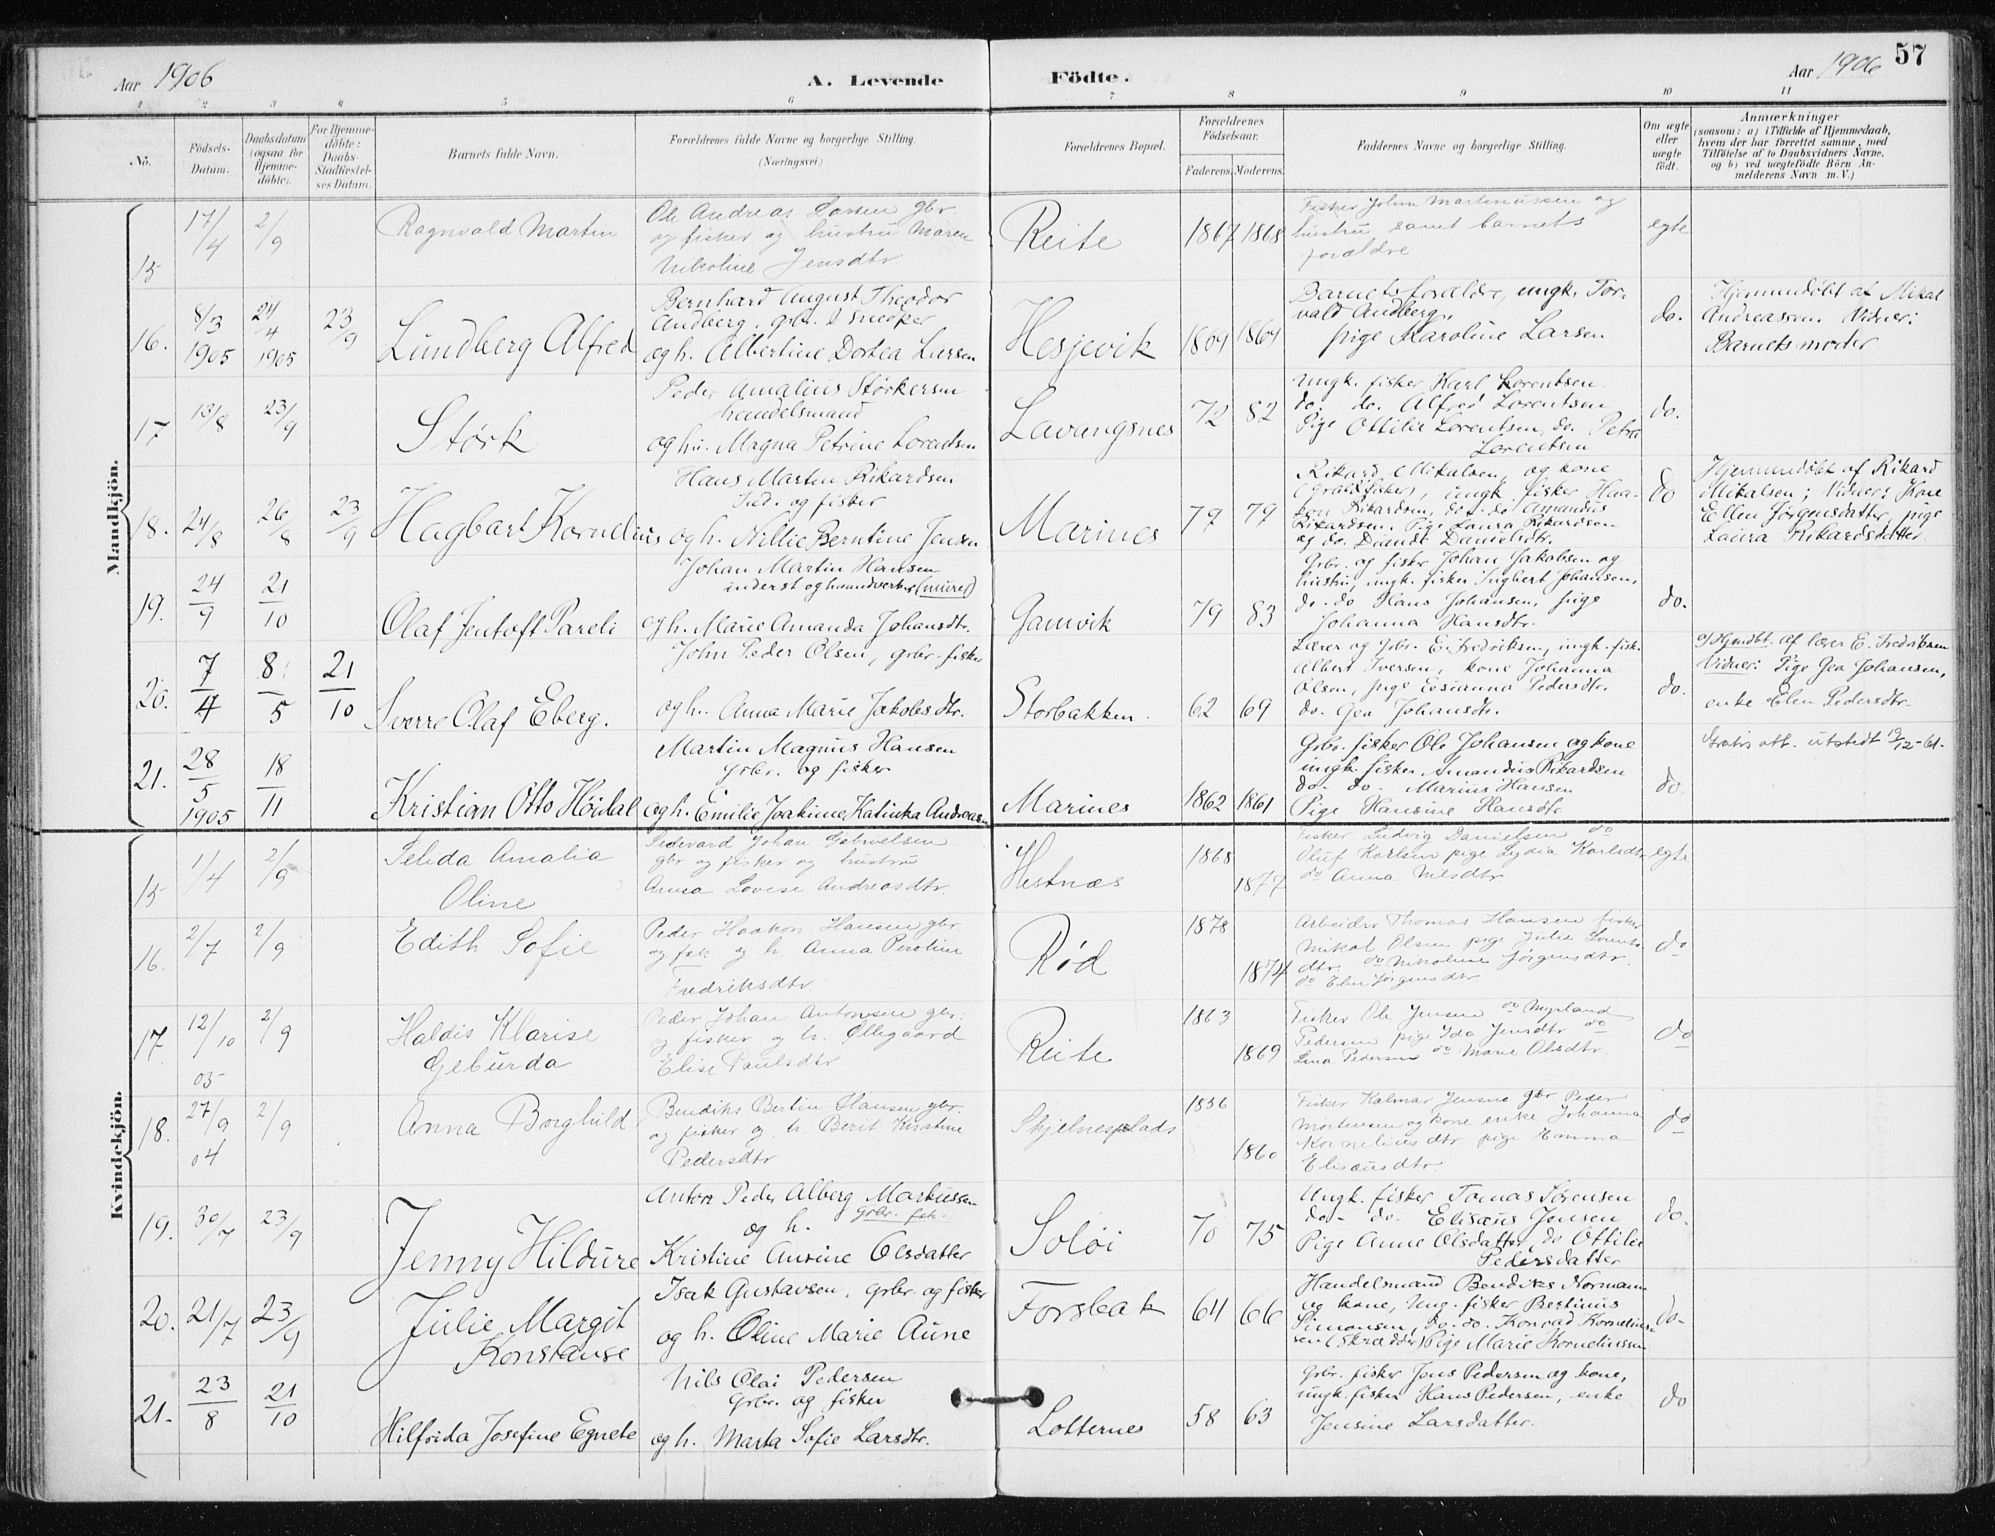 57
Aar 1906
A. Levende
Födte.
Aar 1906
1 2 3 4 5 6 7 8 9 10 11
No.
Födsels-
Datum.
Daabsdatum
(ogsaa for
Hjemme-
döbte).
For Hjemme-
döbte:
Daabs-
Stadfæstel-
ses Datum.
Barnets fulde Navn.
Forældrenes fulde Navne og borgerlige Stilling.
(Næringsvei.)
Forældrenes Bopæl.
Forældrenes
Födselsaar.
Faderens. Moderens.
Faddernes Navne og borgerlige Stilling.
Om ægte
eller
uægte
födt.
Anmærkninger
(saasom: a) i Tilfælde af Hjemmedaab,
hvem der har forrettet samme, med
Tilföielse af to Daabsvidners Navne.
og b) ved uægtefödte Börn An-
melderens Navn m. V.)
Mandkjön.
15 17/4 2/9
Ragnvald Martin
Ole Andreas Larsen gbr
og fisker og hustru Maren
Nikoline Jensdtr.
Reite
1867 1868
Fisker John Martinussen og
hustru samt barnets
forældre
egte
16. 8/3 1905 24/4 1905 23/9
Lundberg Alfred
Bernhard August Theodor
Andberg, grbr. & snedker
og h. Albertine Dortea Larsen
Hesjevik
1869 1864
Barnets forældre, ungk. Tor-
vald Andberg,
pige Karoline Larsen
do.
Hjemmedøbt af Mikal
Andreassen. Vidner:
Barnets moder
17 13/8 23/9
Størk
Peder Amalius Størkersen
handelsmand
og hu. Magna Petrine Lorentsen
Lavangsnes
72 82
Ungk. fisker Karl Lorentsen
do. do. Alfred Lorentsen
Pige Ottilie Lorentsen, do. Petra
Lorentsen
do.
18. 24/8 26/8 23/9
Hagbart Kornelius
Hans Martin Rikardsen
Ind. og fisker
og h. Nillie Berntine Jensen
Marines
77 79
Rikard Mikalsen, og kone
ungk. fisker Haa-
kon Rikardsen, do. do Amandus
Rikardsen. Pige Laura Rikardsen
og do. Danielsdtr.
do
Hjemmedøbt af Rikard
Mikalsen; Vidner: Kone
Ellen Jørgensdatter, pige
Laura Rikardsdatter
19. 24/9 21/10
Olaf Jentoft Pareli
Johan Martin Hansen
inderst og haandverker (murer)
og h. Marie Amanda Johansdtr.
Gamvik
79 83
Grbr. og fisker Johan Jakobsen og
hustru, ungk. fisker Ingbert Johansen,
do. do Hans Johansen, pige
Johanna Hansdtr.
do.
20. 7/4 8/5 21/10
Sverre Olaf Eberg.
John Peder Olsen, grbr. fisker
og h. Anna Marie Jakobsdtr.
Storbakken.
62 69
Lærer og Grbr. E. Fredriksen, ungk. fisk.
Albert Iversen, kone Johanna
Olsen, pige Pedersdtr.
do. Gea Johansdtr.
do.
Hjmdbt. af lærer E. Fredriksen
Vidner: Pige Gea Johansen,
enke Elen Pedersdtr.
21. 28/5 1905 18/11
Kristian Otto Høidal
Martin Magnus Hansen
Grbr. og fisker
og h. Emilie Joakime Katinka Andreasen
Marines
1862 1861
Grbr. fisker Ole Johansen og kone
ungk. fisker Amandus Rikardsen
do. do. Marius Hansen
Pige Hansine Hansdtr.
do.
Gratis att. utstedt 19/12-61.
Kvindekjön.
15 1/4 2/9
Selida Amalia
Oline
Pedevard Johan Gabrielsen
gbr og fisker og hustru
Anna Lovise Andreasdtr.
Hestnæs
1868 1877
Fisker Ludvig Danielsen do
Oluf Karlsen pige Lydia Karlsdtr
do Anna Nilsdtr.
egte
16. 2/7 2/9
Edith Sofie
Peder Haakon Hansen gbr
og fisk og h. Anna Peroline
Fredriksdtr
Rød
1878 1874
Arbeider Thomas Hansen fisker
Mikal Olsen pige Julie Lorents-
dtr. do Nikoline Jørgensdtr.
do Elen Jørgensdtr.
do
17. 12/10 05 2/9
Haldis Klarise
Geburda
Peder Johan Antonsen gbr.
og fisker og h. Ollegaard
Elise Paulsdtr
Reite
1863 1869
Fisker Ole Jensen do Myrland
Pedersen pige Ida Jensdtr do
Lina Pedersen do Marie Olsdtr
do
18. 27/9 04 2/9
Anna Borghild
Bendiks Bertin Hansen gbr.
og fisker og h. Berit Kirstine
Pedersdtr
Skjelnesplads
1856 1860
Fisker Kalmar Jensen gbr Peder
Mortensen og kone enke Johanna
Korneliusdtr pige Emma
Elisæusdtr.
do
19. 30/7 23/9
Jenny Hildure
Anton Peder Alberg Markussen
Grbr. fisk.
og h.
Kristine Antine Olsdatter
Soløi
70 75
Ungk. fisker Tomas Sørensen
do- do. Elisæus Jensen
Pige Anne Olsdatter, do Ottilie
Pedersdatter
do.
20. 21/7 23/9
Julie Margit
Konstanse
Isak Gustavsen, grbr og fisker
og h. Oline Marie Aune
Forsbak
64 66
Handelsmand Bendiks Normann
og kone, Ung. fisker Bertinus
Simonsen, do. do. Konrad Kornelius-
sen (skrædder) Pige Marie Korneliussen
do-
21. 23/8 21/10
Hilfrida Josefine Egnete
Nils Olai Pedersen
Grbr. og fisker
og h. Marta Sofie Larsdtr.
Lotternes
58 63
Grbr. fisker Jens Pedersen og kone,
ungk. fisker Hans Pedersen, enke
Jensine Larsdatter.
do